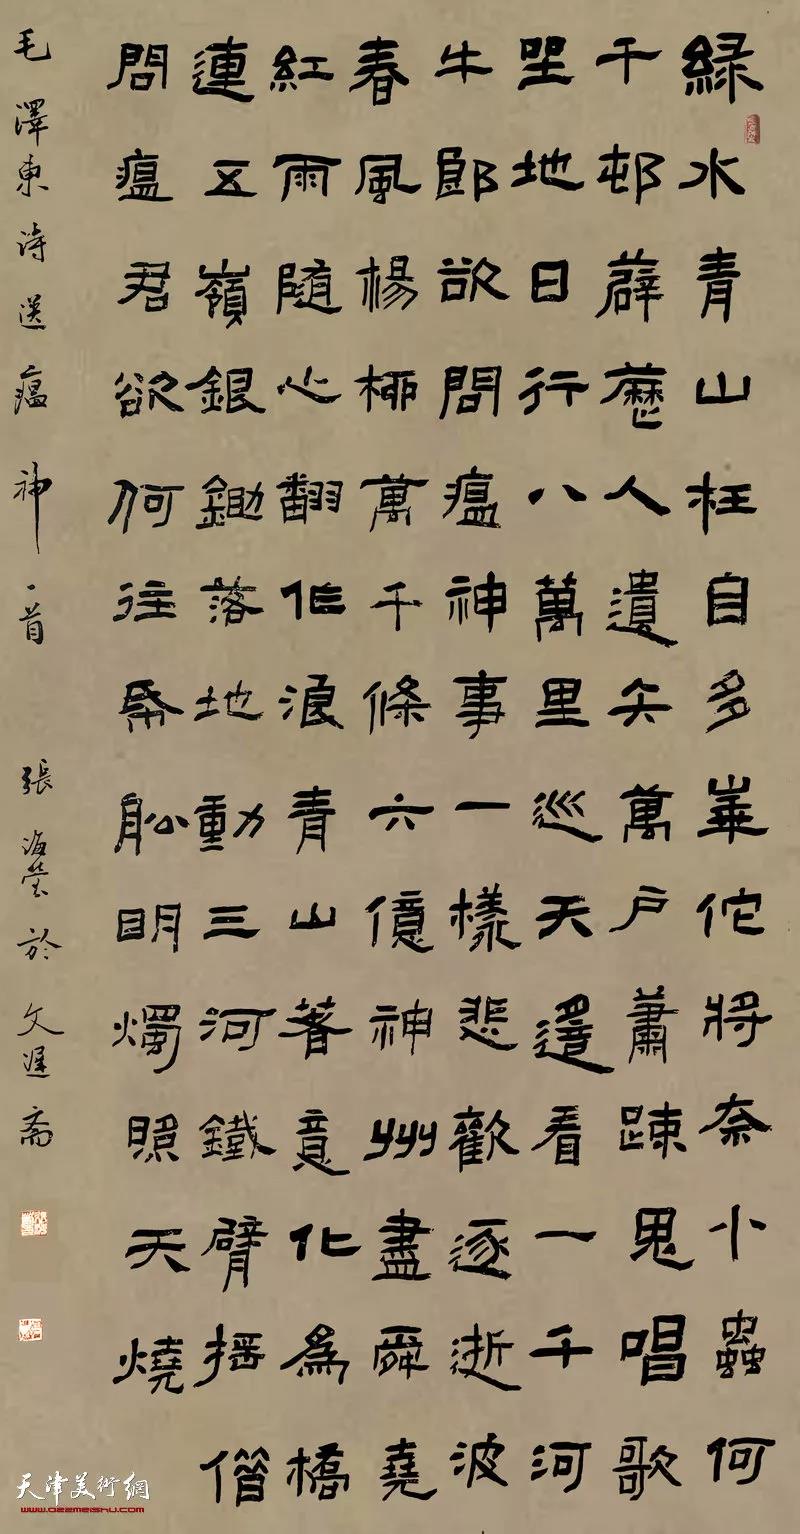 緑水青山枉自多華佗將奈小蟲何
千邨薜藶人遺矢萬戶蕭疎鬼唱歌
坐地日行八萬里巡天遥看一千河
牛郎欲問瘟神事一樣悲歡逐逝波
春風楊柳萬千條六億神州盡舜堯
紅雨随心翻作浪青山著意化為橋
連五嶺銀鋤落地動三河鐵臂摇借
問瘟君欲何往帋船明燭照天燒
毛澤東詩送瘟神一首 張海瑩於文遲斋
天津美術網
www.022meishu.com